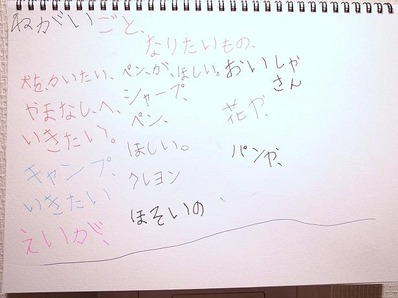 ねがいごと、
なりたいもの、
犬を、かいたい、
やまなし、へ、
いきたい。
キャンプ、
いきたい
えいが、
ペン、が、ほしい。
シャープ、
ペン、
ほしい。
クレヨン
ほそいの
おいしゃ
さん
花や、
パンや、